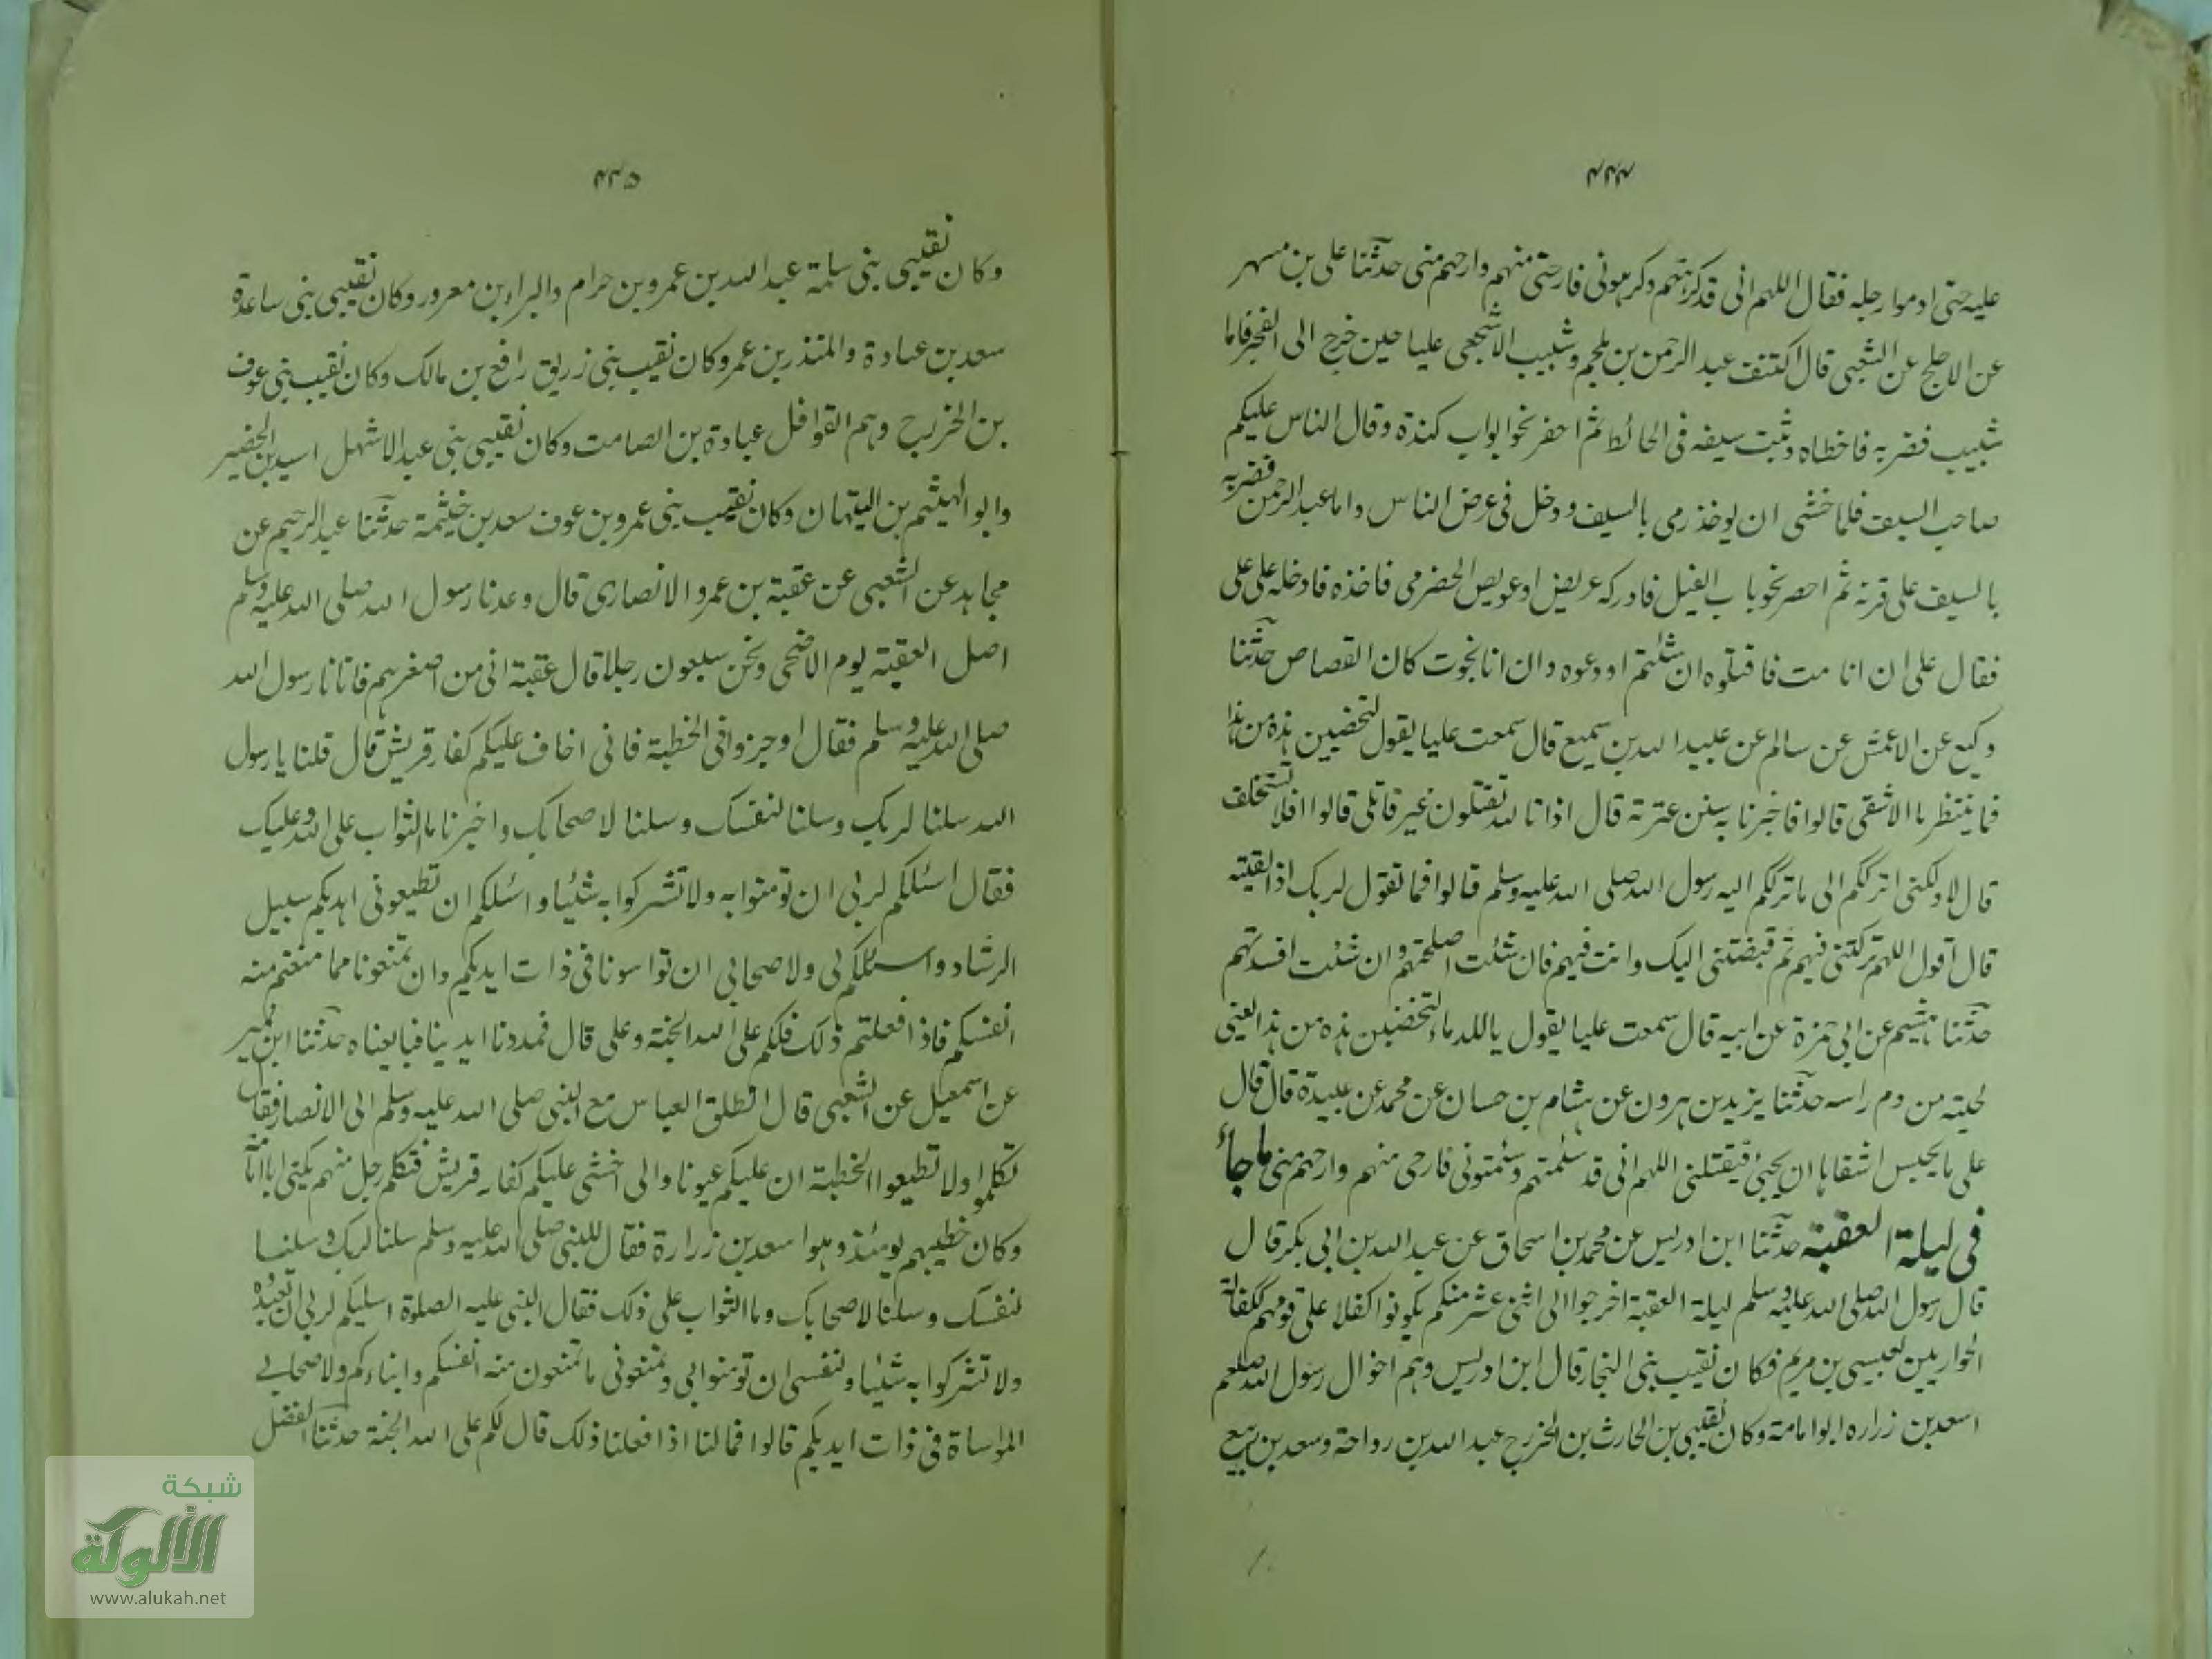 ٤٣٤
عليه حتى ادموا رجله فقال اللهم انى قد كرهتهم وكرهونى فارحنى منهم وارحهم منى حدثنا على بن مسهر
عن الاجلح عن الشعبى قال اكتنف عبد الرحمن بن ملجم وشبيب الاشجعى عليا حين خرج الى الفجر فاما
شبيب فضربه فاخطاه وثبت سيفه فى الحائط ثم احضر نحو ابواب كندة وقال الناس عليكم
صاحب السيف فلما خشى ان يوخذ رمى بالسيف ودخل فى عرض الناس واما عبد الرحمن فضربه
بالسيف على قرنه ثم احصر نحو باب الفيل فادركه عريض او عويص الحضرمى فاخذه فادخله على على
فقال على ان انا مت فاقتلوه ان شئتم او دعوه وان انا نجوت كان القصاص حدثنا
وكيع عن الاعمش عن سالم عن عبيد الله بن سميع قال سمعت عليا يقول لتخضبن هذه من هذا
فما ينتظر بالاشقى قالوا فاخبرنا به سنن عترته قال اذا تالله تقتلون غير قاتلى قالوا افلا تستخلف
قال لا ولكنى اترككم الى ما ترككم اليه رسول الله صلى الله عليه وسلم قالوا فما تقول لربك اذا لقيته
قال اقول اللهم تركتنى فيهم ثم قبضتنى اليك وانت فيهم فان شئت اصلحتهم وان شئت افسدتهم
حدثنا هشيم عن ابى حمزة عن ابيه قال سمعت عليا يقول ياللدماء لتخضبن هذه من هذا يعنى
لحيته من دم راسه حدثنا يزيد بن هرون عن هشام بن حسان عن محمد عن عبيدة قال قال
على ما يحبس اشقاها ان يجئ فيقتلنى اللهم انى قد سئمتهم وسئمونى فارحنى منهم وارحهم منى ما جاء
فى ليلة العقبة حدثنا ابن ادريس عن محمد بن اسحاق عن عبد الله بن ابى بكر قال
قال رسول الله صلى الله عليه وسلم ليلة العقبة اخرجوا الى اثنى عشر منكم يكونوا كفلا على قومهم ككفالة
الحواريين لعيسى بن مريم فكان نقيب بنى النجار قال ابن ادريس وهم اخوال رسول الله صلعم
اسعد بن زراره ابو امامة وكان نقيبى بن الحارث بن الخزرج عبد الله بن رواحة وسعد بن ربيع
٤٣٥
وكان نقيبى بنى سلمة عبد الله بن عمرو بن حرام والبراء بن معرور وكان نقيبى بنى ساعدة
سعد بن عبادة والمنذر بن عمرو كان نقيب بنى زريق رافع بن مالك وكان نقيب بنى عوف
بن الخزرج وهم القوافل عبادة بن الصامت وكان نقيبى بنى عبد الاشهل اسيد بن الحضير
وابو الهيثم بن التيهان وكان نقيب بنى عمرو بن عوف سعد بن خيثمة حدثنا عبد الرحيم عن
مجاهد عن الشعبى عن عقبة بن عمرو الانصارى قال وعدنا رسول الله صلى الله عليه وسلم
اصل العقبة يوم الاضحى ونحن سبعون رجلا قال عقبة انى من اصغرهم فاتانا رسول الله
صلى الله عليه وسلم فقال اوجزوا فى الخطبة فانى اخاف عليكم كفار قريش قال قلنا يا رسول
الله سلنا لربك وسلنا لنفسك وسلنا لاصحابك واخبرنا ما الثواب على الله وعليك
فقال اسئلكم لربى ان تومنوا به ولا تشركوا به شيئا واسئلكم ان تطيعونى اهديكم سبيل
الرشاد واسئلكم لى ولاصحابى ان تواسونا فى ذات ايديكم وان تمنعونا مما منعتم منه
انفسكم فاذا فعلتم ذلك فلكم على الله الجنة وعلى قال فمددنا ايدينا فبايعناه حدثنا ابن نمير
عن اسمعيل عن الشعبى قال انطلق العباس مع النبى صلى الله عليه وسلم الى الانصار فقال
تكلموا ولا تطيعوا الخطبة ان عليكم عيونا وانى اخشى عليكم كفار قريش فتكلم رجل منهم يكنى ابا امامة
وكان خطيبهم يومئذ وهو اسعد بن زرارة فقال للنبى صلى الله عليه وسلم سلنا لربك وسلنا
لنفسك وسلنا لاصحابك وما الثواب على ذلك فقال النبى عليه الصلوة اسليكم لربى ان تعبدوه
ولا تشركوا به شيئا ولنفسى ان تومنوا بى وتمنعونى ما تمنعون منه انفسكم وابناءكم ولاصحابى
المواساة فى ذات ايديكم قالوا فما لنا اذا فعلنا ذلك قال لكم على الله الجنة حدثنا الفضل
شبكة
الألوكة
www.alukah.net